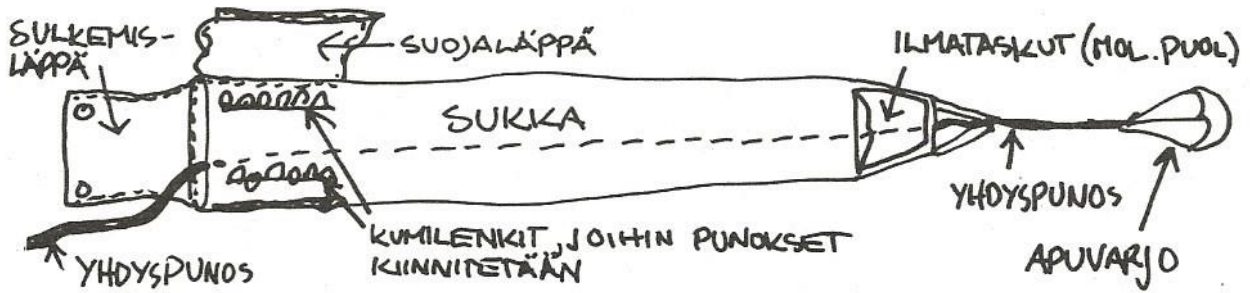 SULKEMIS-
LÄPPÄ
SUOJALÄPPÄ
ILMATASKUT (MOL. PUOL)
SUKKA
YHDYSPUNOS
KUMILENKIT, JOIHIN PUNOKSET
KIINNITETÄÄN
YHDYSPUNOS
APUVARJO